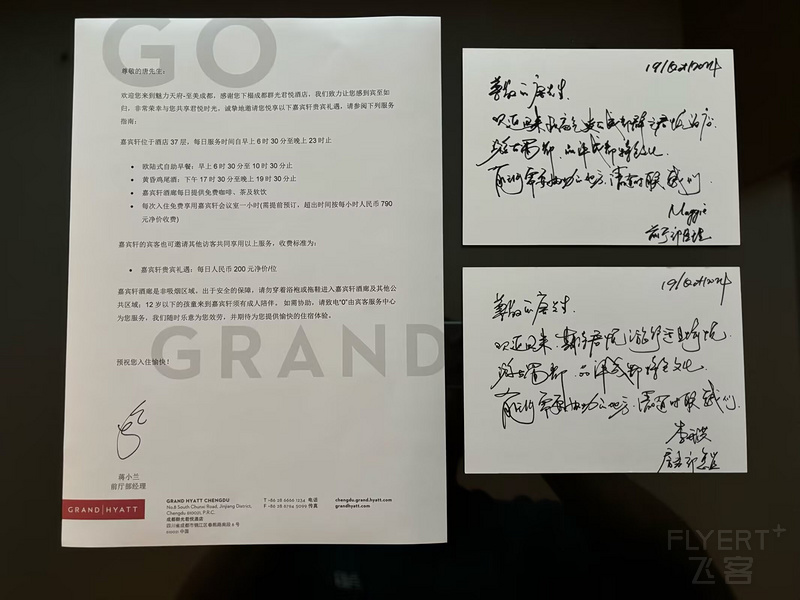 GO
尊敬的唐先生:
欢迎您来到魅力天府-至美成都,感谢您下榻成都群光君悦酒店,我们致力让您感到宾至如
归,非常荣幸与您共享君悦时光。诚挚地邀请您悦享以下嘉宾轩贵宾礼遇,请参阅下列服务
指南:
嘉宾轩位于酒店 37 层,每日服务时间自早上 6 时 30 分至晚上 23 时止
• 欧陆式自助早餐:早上 6 时 30 分至 10 时 30 分止
• 黄昏鸡尾酒:下午 17 时 30 分至晚上 19 时 30 分止
• 嘉宾轩酒廊每日提供免费咖啡、茶及软饮
• 每次入住免费享用嘉宾轩会议室一小时(需提前预订,超出时间按每小时人民币 790
元净价收费)
嘉宾轩的宾客也可邀请其他访客共同享用以上服务,收费标准为:
• 嘉宾轩贵宾礼遇:每日人民币 200 元净价/位
嘉宾轩酒廊是非吸烟区域,出于安全的保障,请勿穿着浴袍或拖鞋进入嘉宾轩酒廊及其他公
共区域;12 岁以下的孩童来到嘉宾轩须有成人陪伴。如需协助,请致电"0"由宾客服务中心
为您服务,我们随时乐意为您效劳,并期待为您提供愉快的住宿体验。
GRAND
预祝您入住愉快!
蒋小兰
前厅部经理
GRAND | HYATT
GRAND HYATT CHENGDU
No.8 South Chunxi Road, Jinjiang District,
Chengdu 610021, P.R.C.
成都群光君悦酒店
四川省成都市锦江区春熙路南段 8 号
610021 中国
T +86 28 6666 1234 电话
F +86 28 8764 5099 传真
chengdu.grand.hyatt.com
grandhyatt.com
19/Oct/2024
尊敬的唐先生.
欢迎回来
游古蜀都.品味成都特色文化.
前 需要协助的地方.请随时联系我们.
Maggie
前厅部经理
19/Oct/2024
尊敬的唐先生.
欢迎回来.
游古蜀都.品味成都特色文化.
需要协助的地方.请随时联系我们.
FLYERT+
飞客